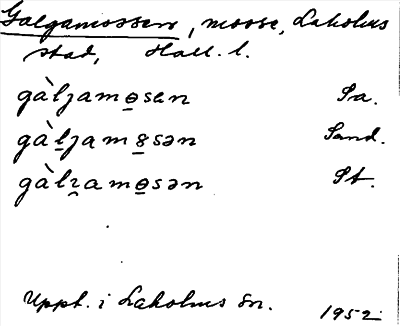 Galgamossen, mosse, Laholms
stad, Hall. l.
gàlʒamo̲sen Sa.
gàl̲ʒam8̲sən Sand.
gàlʒ̯amo̲sən St.
Uppt. i Laholms sn. 1952